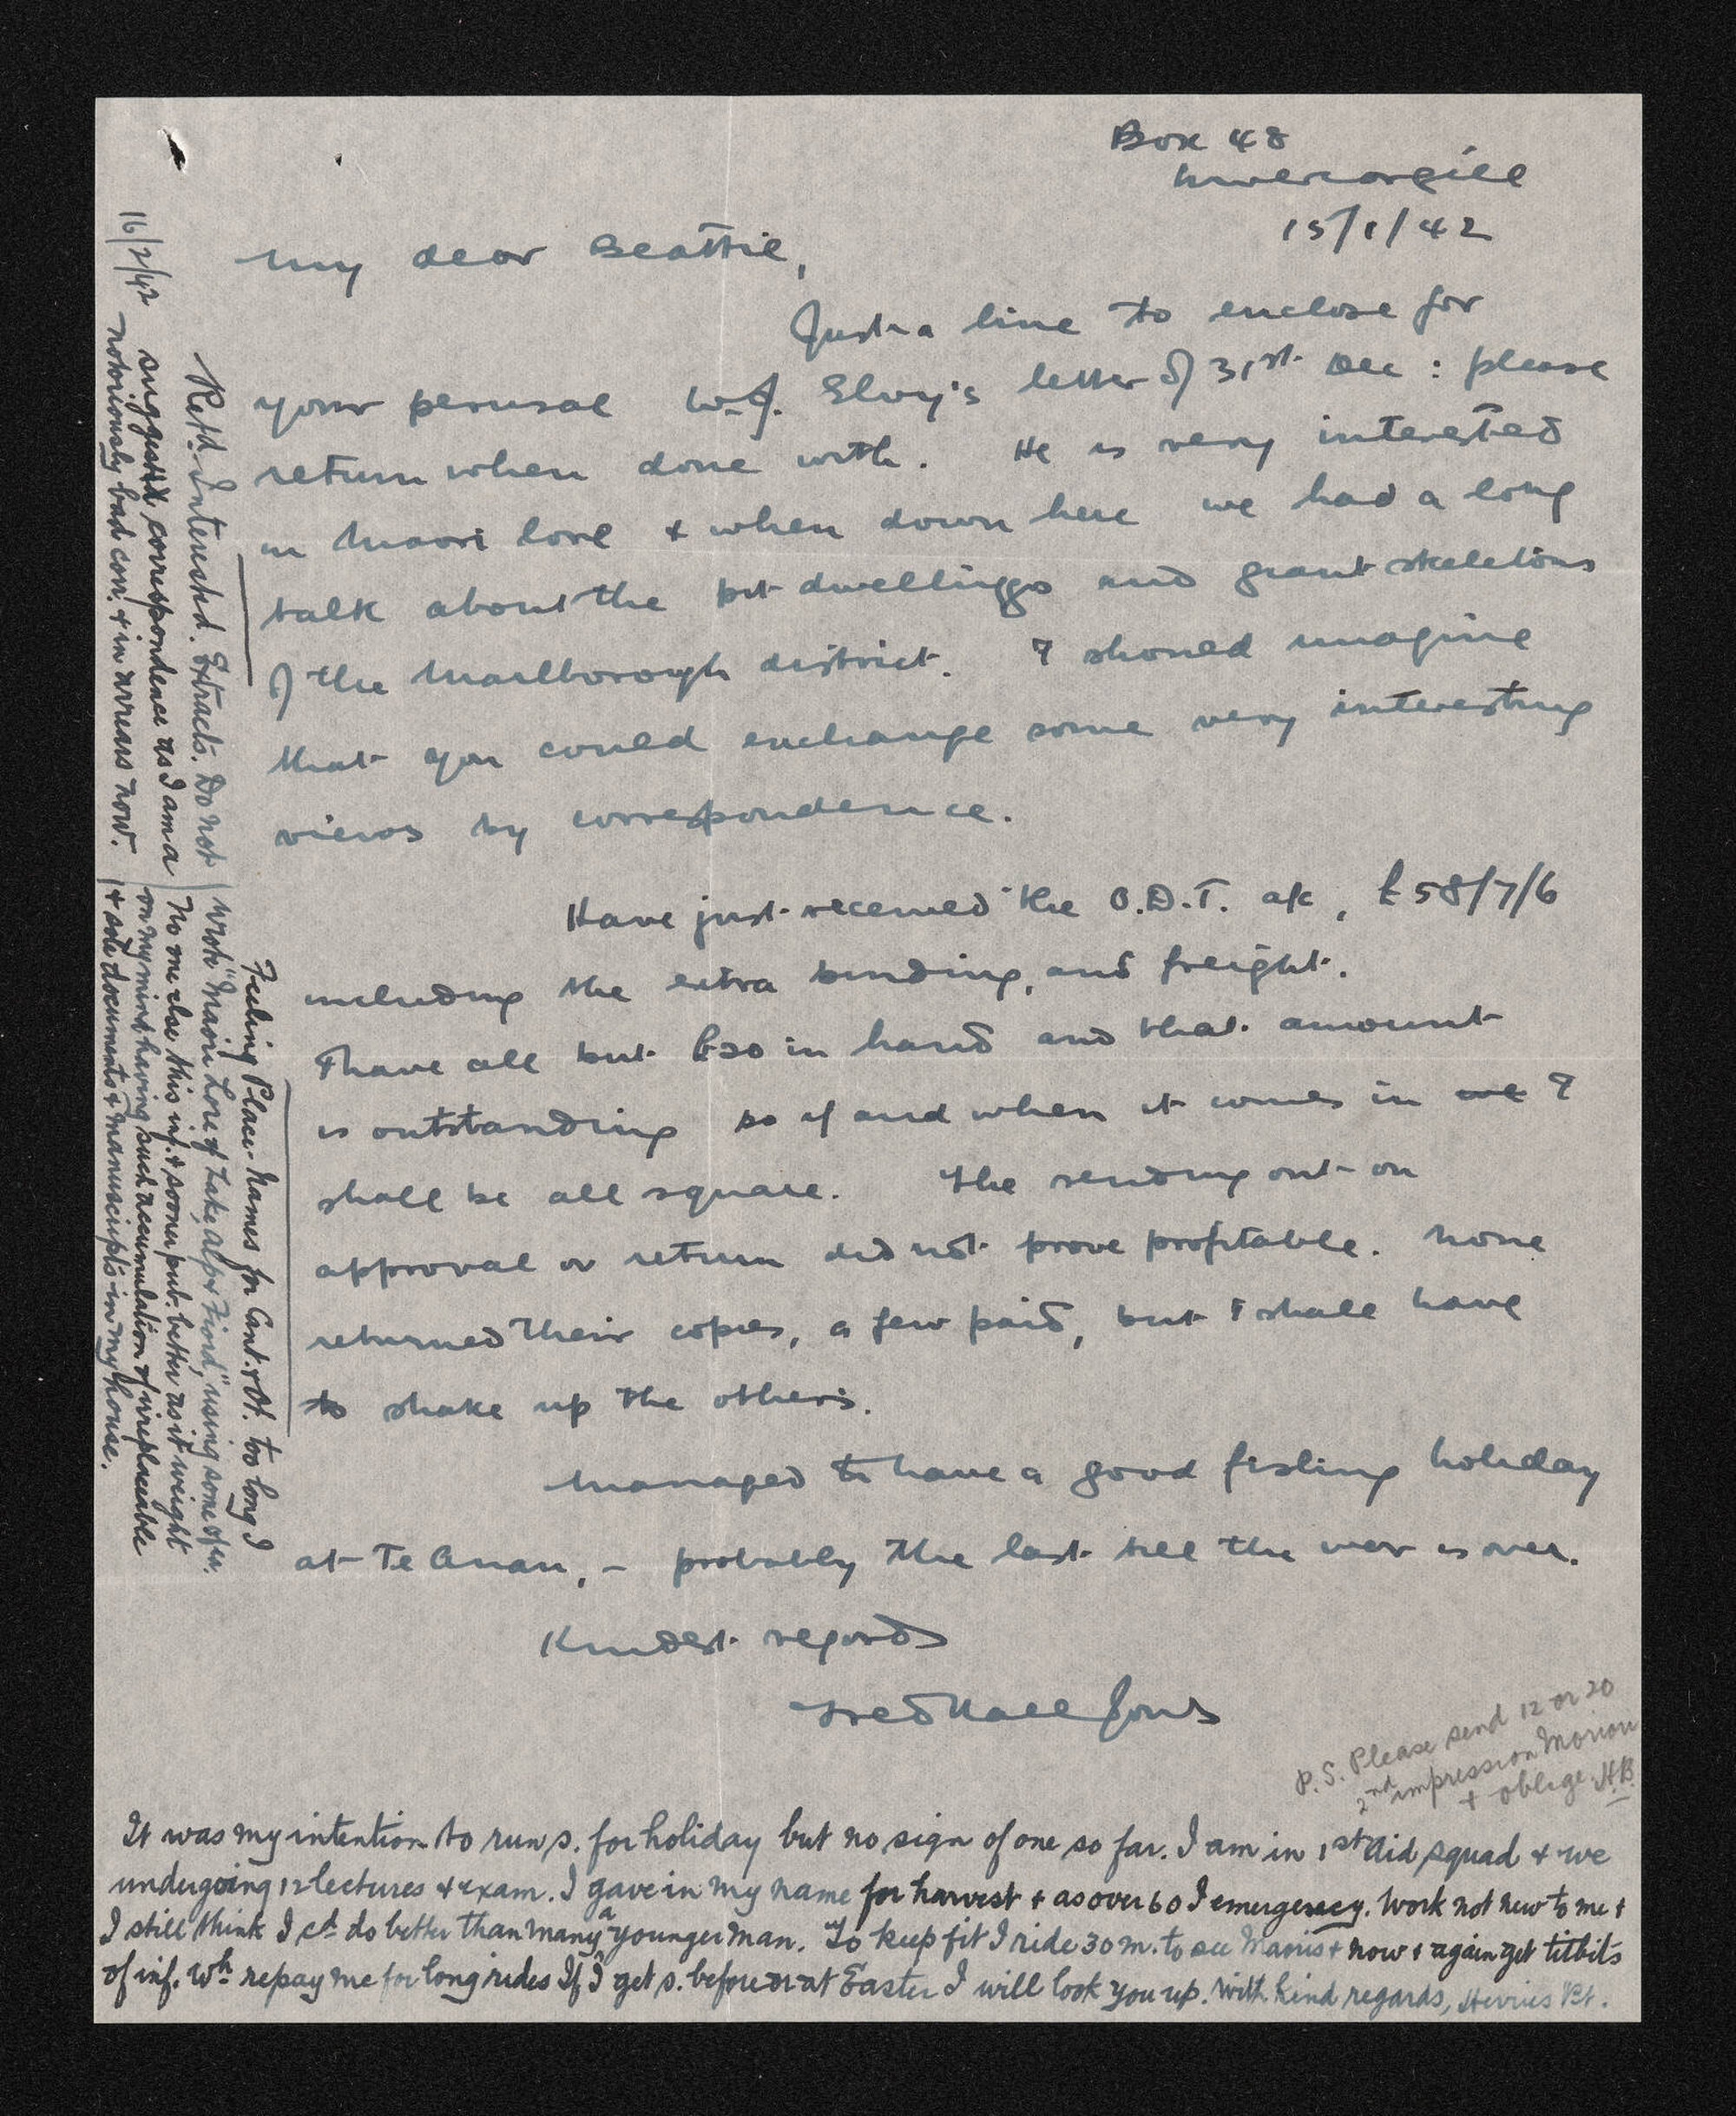 Box 48
Invercargill
15/1/42
My dear Beattie,
Just a line to enclose for
your perusal W.J. Elvy's letter of 31st Dec : please
return when done with. He is very interested
in Maori lore & when down here we had a long
talk about the pit dwellings and giant skeletons
of the Marlborough district. I should imagine
that you could exchange some very interesting
views by correspondence.
Have just received the O.D.T. a/c, £58/7/6
including the extra binding, and freight.
I have all but £30 in hand and that amount
is outstanding so if and when it comes in we I
shall be all square. The sending out on
approval or return did not prove profitable. None
returned their copies, a few paid, but I shall have
to shake up the others.
Managed to have a good fishing holiday
at Te Anau, - probably the last till the war is over.
Kindest regards
Fred Hall Jones
P.S. Please send 12 or 20
2nd impression Moriori
& oblige H.B.
16/2/42
Retd. Interested. Extracts. Do not
suggest correspondence as I am a
notoriously bad corr. & in arrears now.
Feeling Place-names for Cant. & Ot. too long I
wrote "Maori Lore of Lake, Alp & Fiord," using some of
No one else this inf. & sooner pub. better as it weight
on my mind having such accumulation of irreplaceable
& sole documents & manuscripts in my house.
It was my intention to run s. for holiday but no sign of one so far. I am in 1st Aid squad & we
undergoing 12 lectures & exam. I gave in my name for harvest & as over 60 I emergency. Work not new to me &
I still think I cd do better than many a younger man. To keep fit I ride 30 m. to see Maoris & now & again get titbits
of inf. wh repay me for long rides If I get s. before or at Easter I will look you up. With kind regards, Herries Bt.